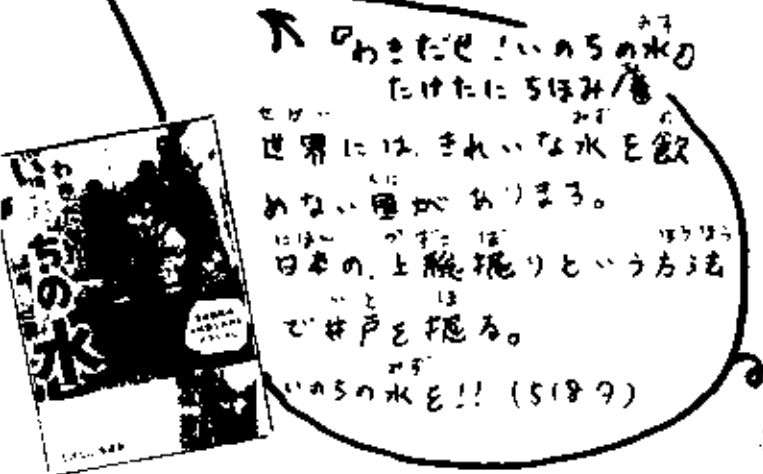 『わきだせ!いのちの水』
たけたに ちほみ/著
世界には、きれいな水を飲
めない国があります。
日本の、上総掘りという方法
で井戸を掘る。
いのちの水を!! (518タ)
ちの水